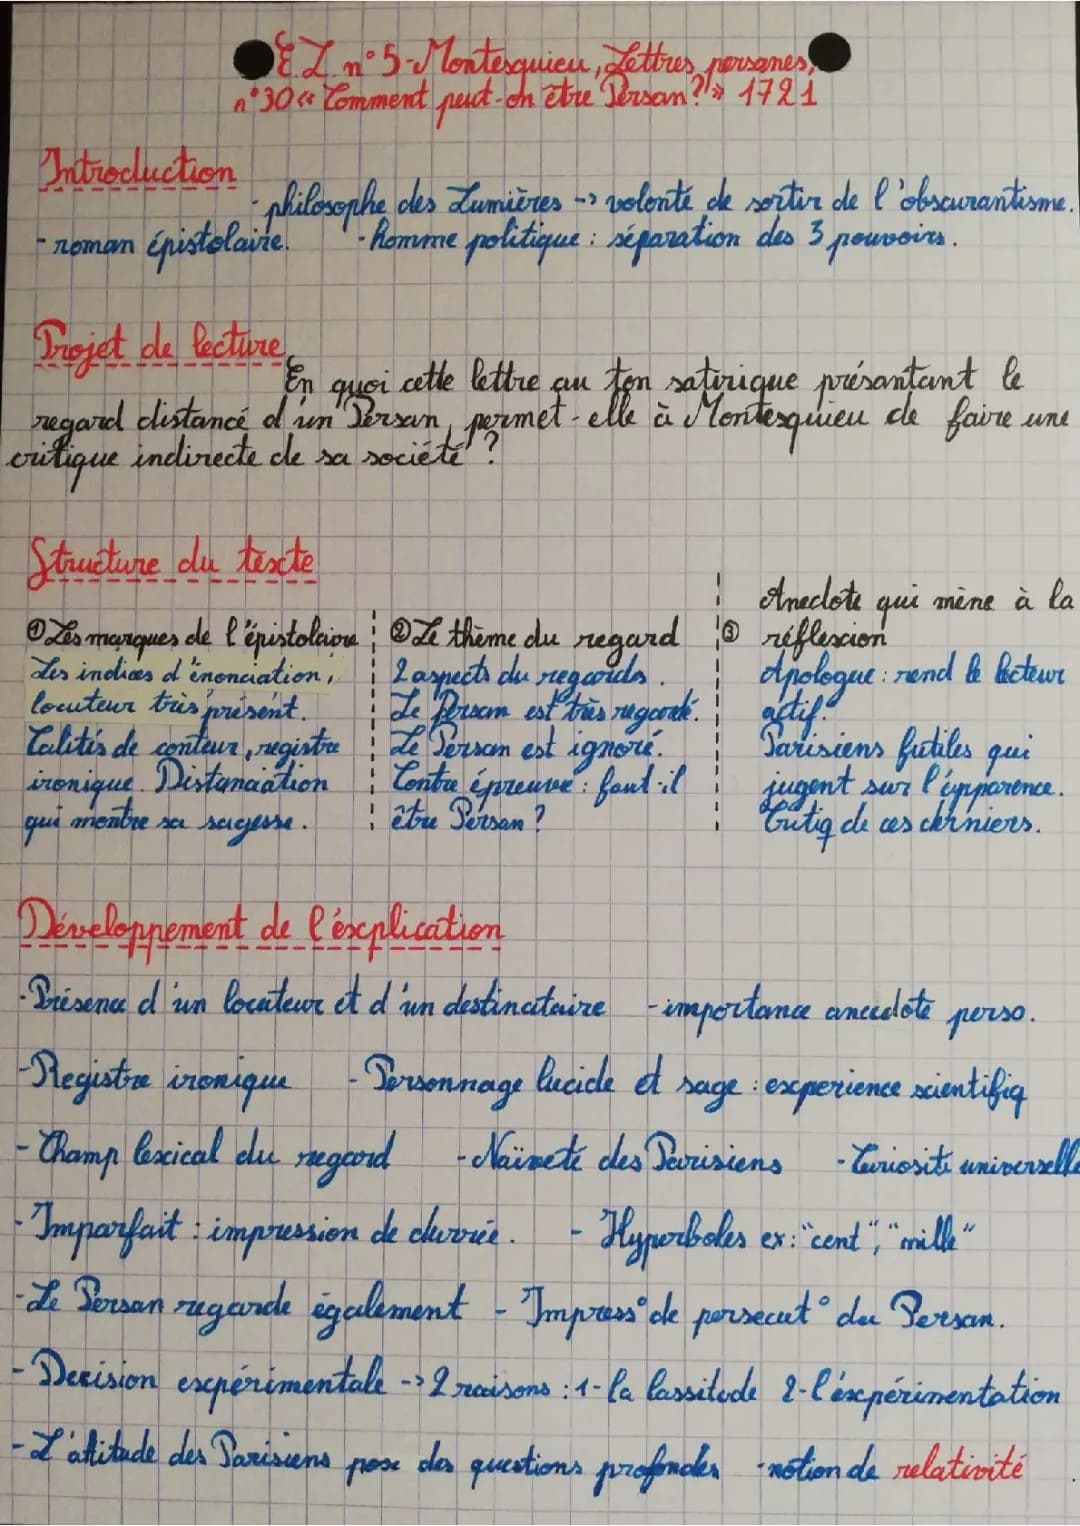 E.L n°5-Montesquieu, Lettres persanes,
n°30 « Comment peut-on être Persan? » 1721
Introduction
- philosophe des Lumières -> volonté de sortir de l'obscurantisme.
- roman épistolaire. - homme politique : séparation des 3 pouvoirs.
Projet de lecture
En quoi cette lettre au ton satirique présantant le
regard distancé d'un Persan, permet-elle à Montesquieu de faire une
critique indirecte de sa société ?
Structure du texte
① Les marques de l'épistolaire
Les indices d'énonciation,
locuteur très présent.
Talits de conteur, registre
ironique. Distanciation
qui montre sa sagesse.
② Le thème du regard
2 aspects du regards.
Le Persan est très regardé.
Le Persan est ignoré.
Contre épreuve : faut-il
être Persan ?
③ Anecdote qui mène à la
réflexion
Apologue : rend le lecteur
actif.
Parisiens futiles qui
jugent sur l'apparence.
Critiq de ces derniers.
Développement de l'explication
- Présence d'un locuteur et d'un destinataire - importance anecdote perso.
- Registre ironique - Personnage lucide et sage : experience scientifiq
- Champ lexical du regard - Naïveté des Parisiens - Curiosité universelle
- Imparfait : impression de durrée. - Hyperboles ex: "cent", "mille"
- Le Persan regarde également - Impress° de persecut° du Persan.
- Decision expérimentale -> 2 raisons : 1-la lassitude 2-l'expérimentation
- L'attitude des Parisiens pose des questions profondes - notion de relativité